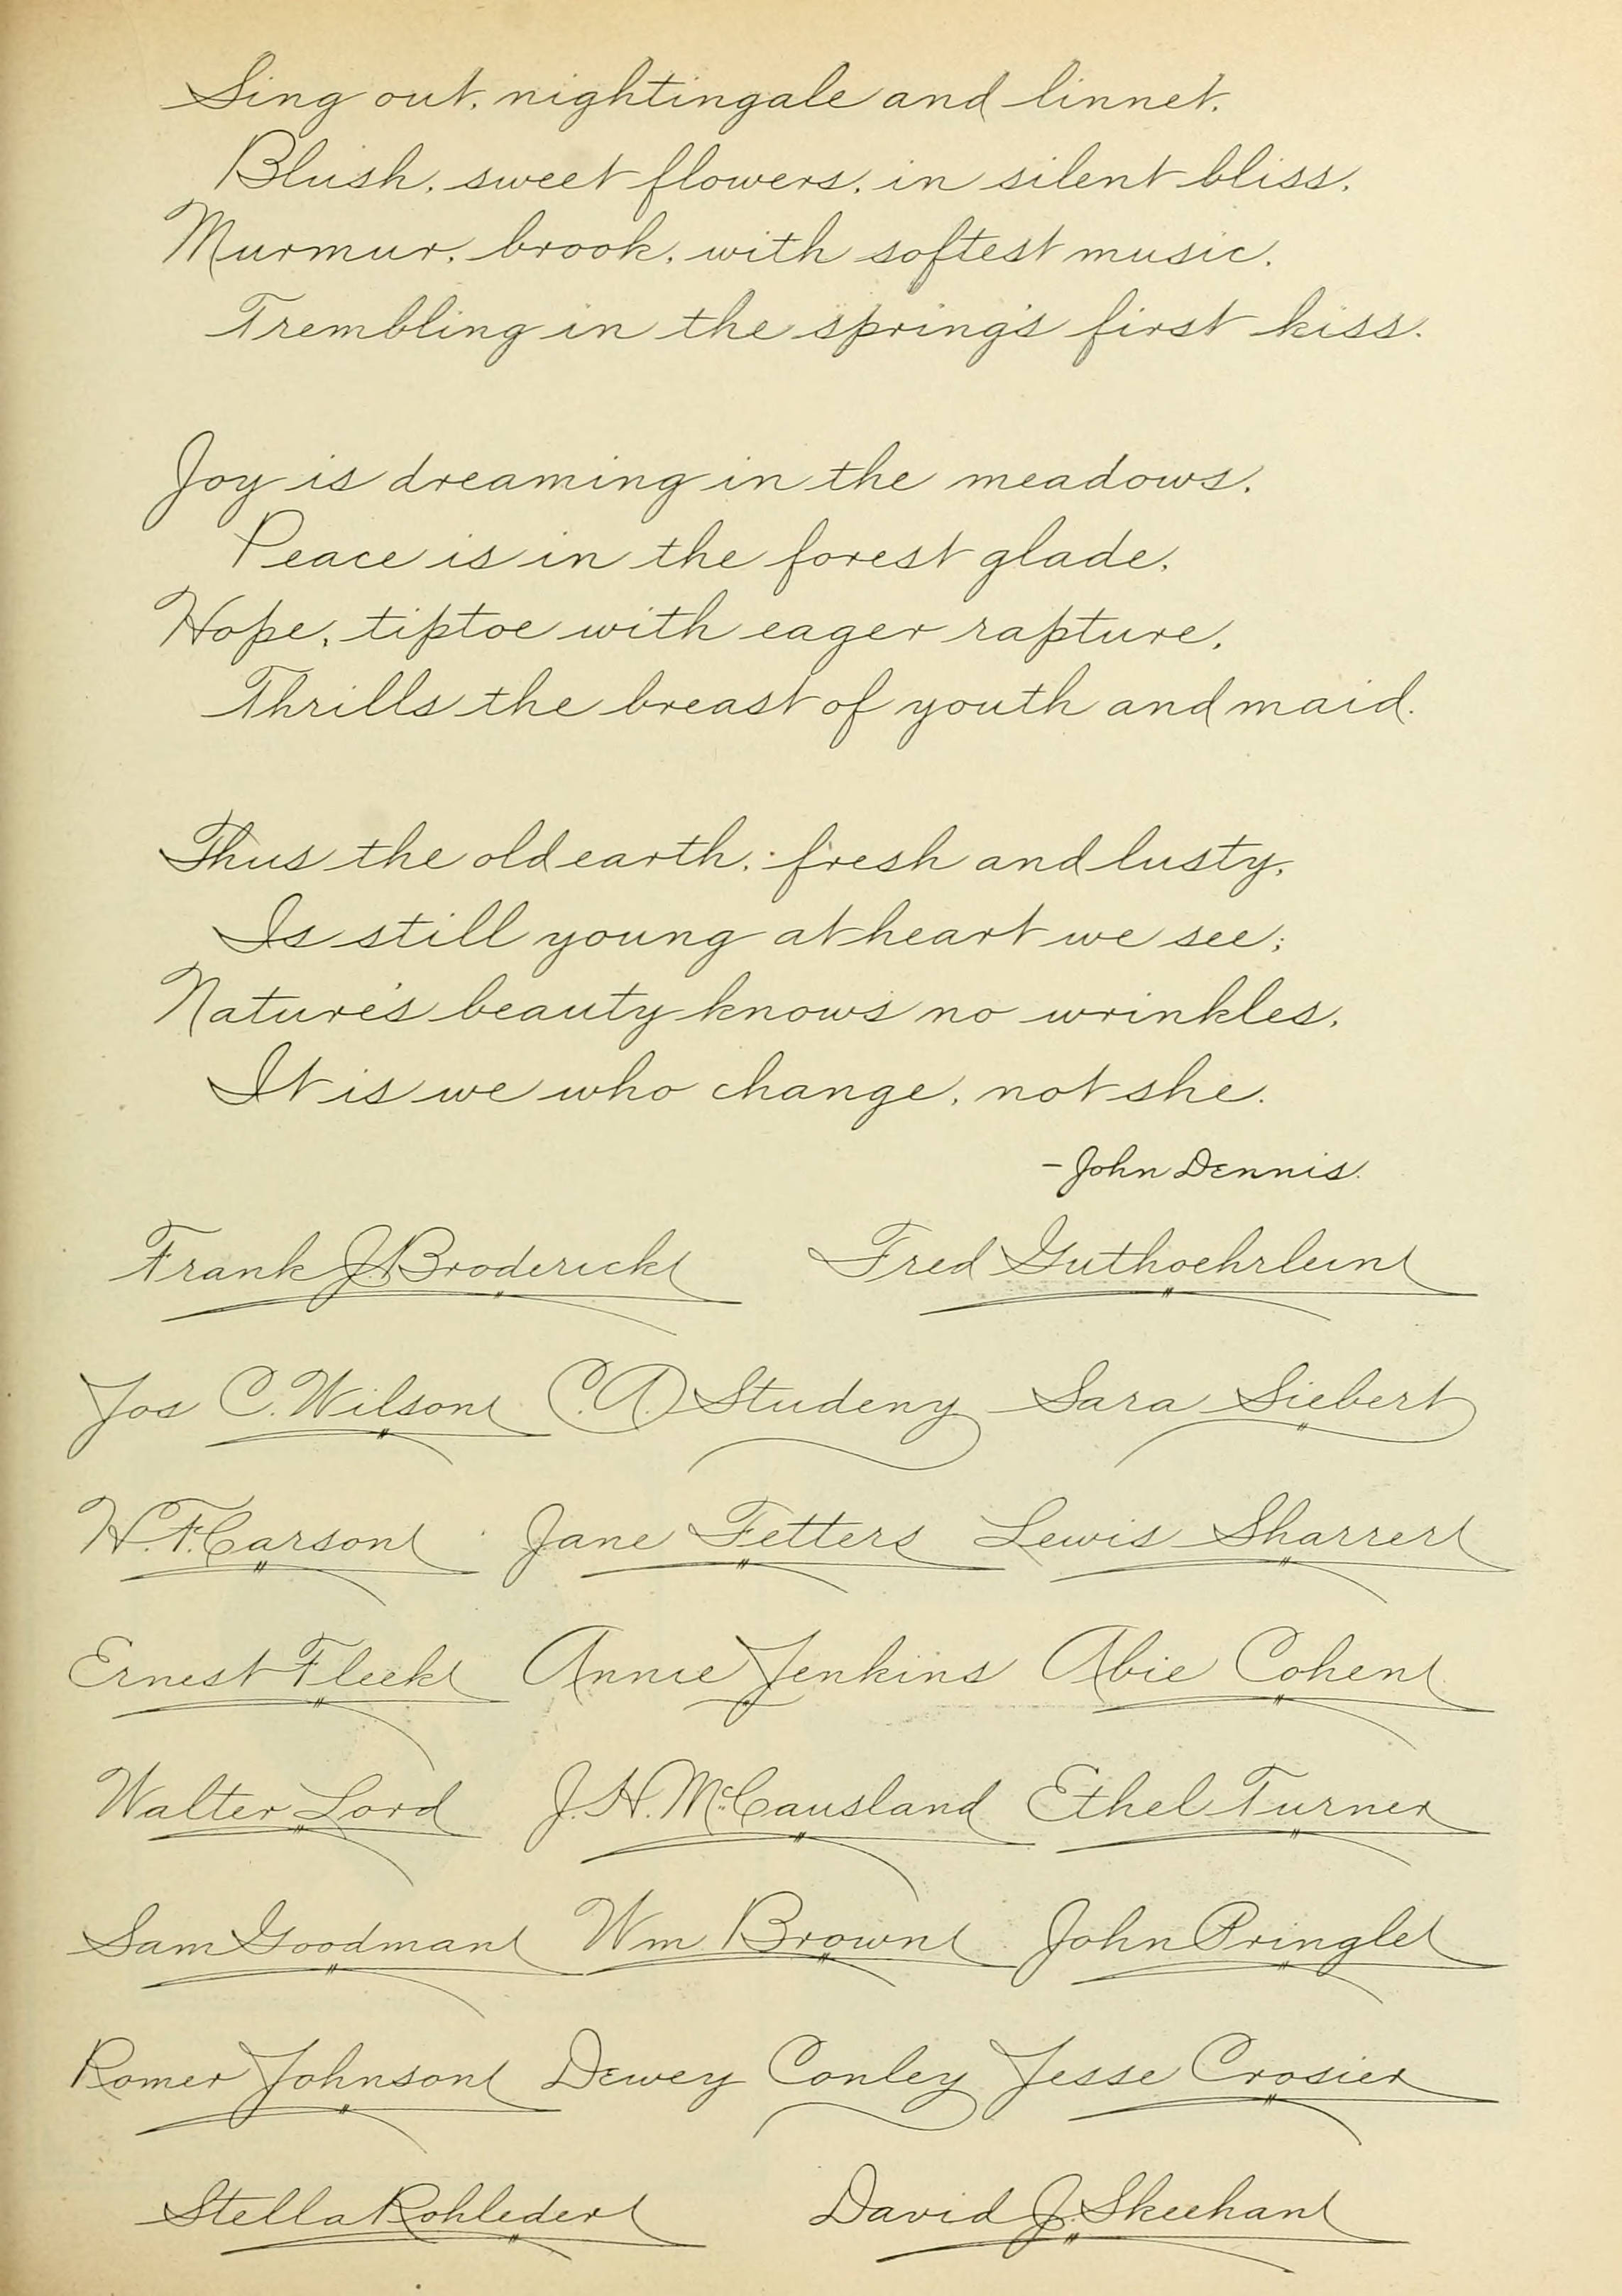 Sing out, nightingale and linnet,
Blush, sweet flowers, in silent bliss,
Murmur, brook, with softest music,
Trembling in the spring's first kiss.
Joy is dreaming in the meadows,
Peace is in the forest glade,
Hope, tiptoe with eager rapture,
Thrills the breast of youth and maid.
Thus the old earth, fresh and lusty,
Is still young at heart we see;
Nature's beauty knows no wrinkles,
It is we who change, not she.
- John Dennis.
Frank J. Broderick Fred Guthoehrlein
Jos C. Wilson C. A. Studeny Sara Siebert
W. F. Carson Jane Fetters Lewis Sharrer
Ernest Fleck Annie Jenkins Abie Cohen
Walter Lord J. H. McCausland Ethel Turner
Sam Goodman Wm Brown John Pringle
Romer Johnson Dewey Conley Jesse Crosier
Stella Rohleder David J. Skeehan